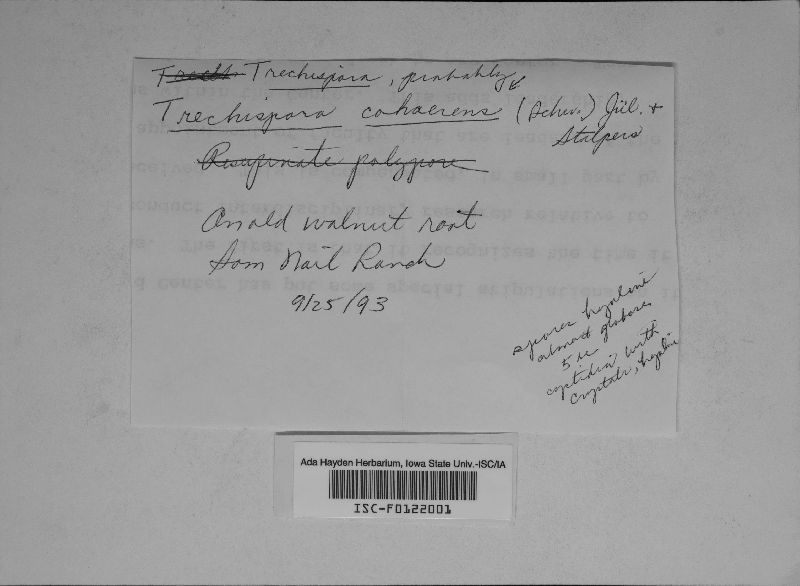 Trechispora, probably
Trechispora cohaerens (Schw.) Jül. +
Stalpers
Resupinate polypore
On old walnut root
Tom Nail Ranch
9/25/93
spores hyaline
almost globose
5 u
cystidia with
crystals, hyalin
Ada Hayden Herbarium, Iowa State Univ.-ISC/IA
ISC-F0122001